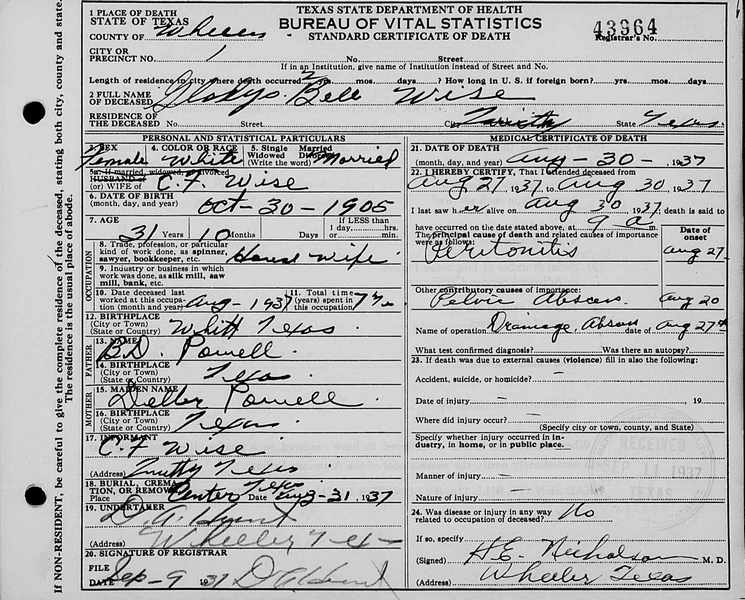 1 PLACE OF DEATH
STATE OF TEXAS
COUNTY OF Wheeler
CITY OR
PRECINCT NO. 1
TEXAS STATE DEPARTMENT OF HEALTH
BUREAU OF VITAL STATISTICS
STANDARD CERTIFICATE OF DEATH
43964
Registrar's No.
No. Street
If in an Institution, give name of Institution instead of Street and No.
Length of residence in city where death occurred yrs. mos. days? How long in U. S. if foreign born? yrs. mos. days
2 FULL NAME
OF DECEASED Gladys Bell Wise
RESIDENCE OF
THE DECEASED No. Street City State Texas
PERSONAL AND STATISTICAL PARTICULARS
3. SEX Female
4. COLOR OR RACE White
5. Single Married
Widowed Divorced
(Write the word) Married
5a. If married, widowed, divorced
HUSBAND of
(or) WIFE of C. F. Wise
6. DATE OF BIRTH
(month, day, and year) Oct-30-1905
7. AGE
31 Years 10 Months Days
If LESS than
1 day, hrs.
or Minutes
OCCUPATION
8. Trade, profession, or particular
kind of work done, as spinner,
sawyer, bookkeeper, etc. House wife
9. Industry or business in which
work was done, as silk mill, saw
mill, bank, etc.
10. Date deceased last
worked at this occupa-
tion (month and year) Aug-1937
11. Total time
(years) spent in
this occupation
12. BIRTHPLACE
(City or Town)
(State or Country) Whitt Texas
FATHER
13. NAME
B.D. Powell
14. BIRTHPLACE
(City or Town)
(State or Country) Texas
MOTHER
15. MAIDEN NAME
Powell
16. BIRTHPLACE
(City or Town)
(State or Country) Texas
17. INFORMANT
C. F. Wise
(Address) Texas
18. BURIAL, CREMA-
TION, OR REMOVAL
Place Center Texas Date Aug-31, 1937
19. UNDERTAKER
D. A. Hunt
(Address) Wheeler Tex
20. SIGNATURE OF REGISTRAR
FILE
DATE Sep-9 1937 D A Hunt
MEDICAL CERTIFICATE OF DEATH
21. DATE OF DEATH
(month, day, and year) Aug-30- 1937
22. I HEREBY CERTIFY, That I attended deceased from
Aug 27, 1937, to Aug 30 1937
I last saw her alive on Aug 30 1937; death is said to
have occurred on the date stated above, at 9 a m.
The principal cause of death and related causes of importance
were as follows:
Date of
onset
Peritonitis Aug 27
Other contributory causes of importance:
Pelvic Abscess Aug 20
Name of operation Drainage, Abscess date of Aug 27th
What test confirmed diagnosis? Was there an autopsy?
23. If death was due to external causes (violence) fill in also the following:
Accident, suicide, or homicide? -
Date of injury - 19
Where did injury occur? -
(Specify city or town, county, and State)
Specify whether injury occurred in in-
dustry, in home, or in public place.
Manner of injury -
Nature of injury -
RECEIVED
11 1937
TEXAS
24. Was disease or injury in any way
related to occupation of deceased? No
If so, specify
(Signed) H.E. Nicholson M. D.
(Address) Wheeler Texas
IF NON-RESIDENT, be careful to give the complete residence of the deceased, stating both city, county and state.
The residence is the usual place of abode.